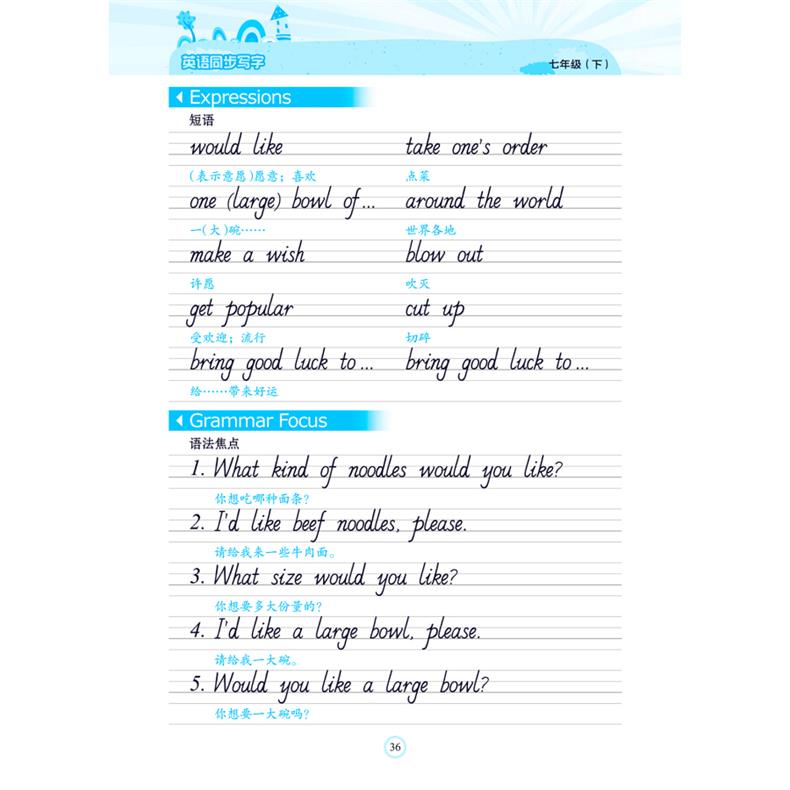 英语同步写字
七年级（下）
Expressions
短语
would like take one's order
（表示意愿）愿意；喜欢 点菜
one (large) bowl of... around the world
一（大）碗…… 世界各地
make a wish blow out
许愿 吹灭
get popular cut up
受欢迎；流行 切碎
bring good luck to... bring good luck to...
给……带来好运
Grammar Focus
语法焦点
1. What kind of noodles would you like?
你想吃哪种面条？
2. I'd like beef noodles, please.
请给我来一些牛肉面。
3. What size would you like?
你想要多大份量的？
4. I'd like a large bowl, please.
请给我一大碗。
5. Would you like a large bowl?
你想要一大碗吗？
36